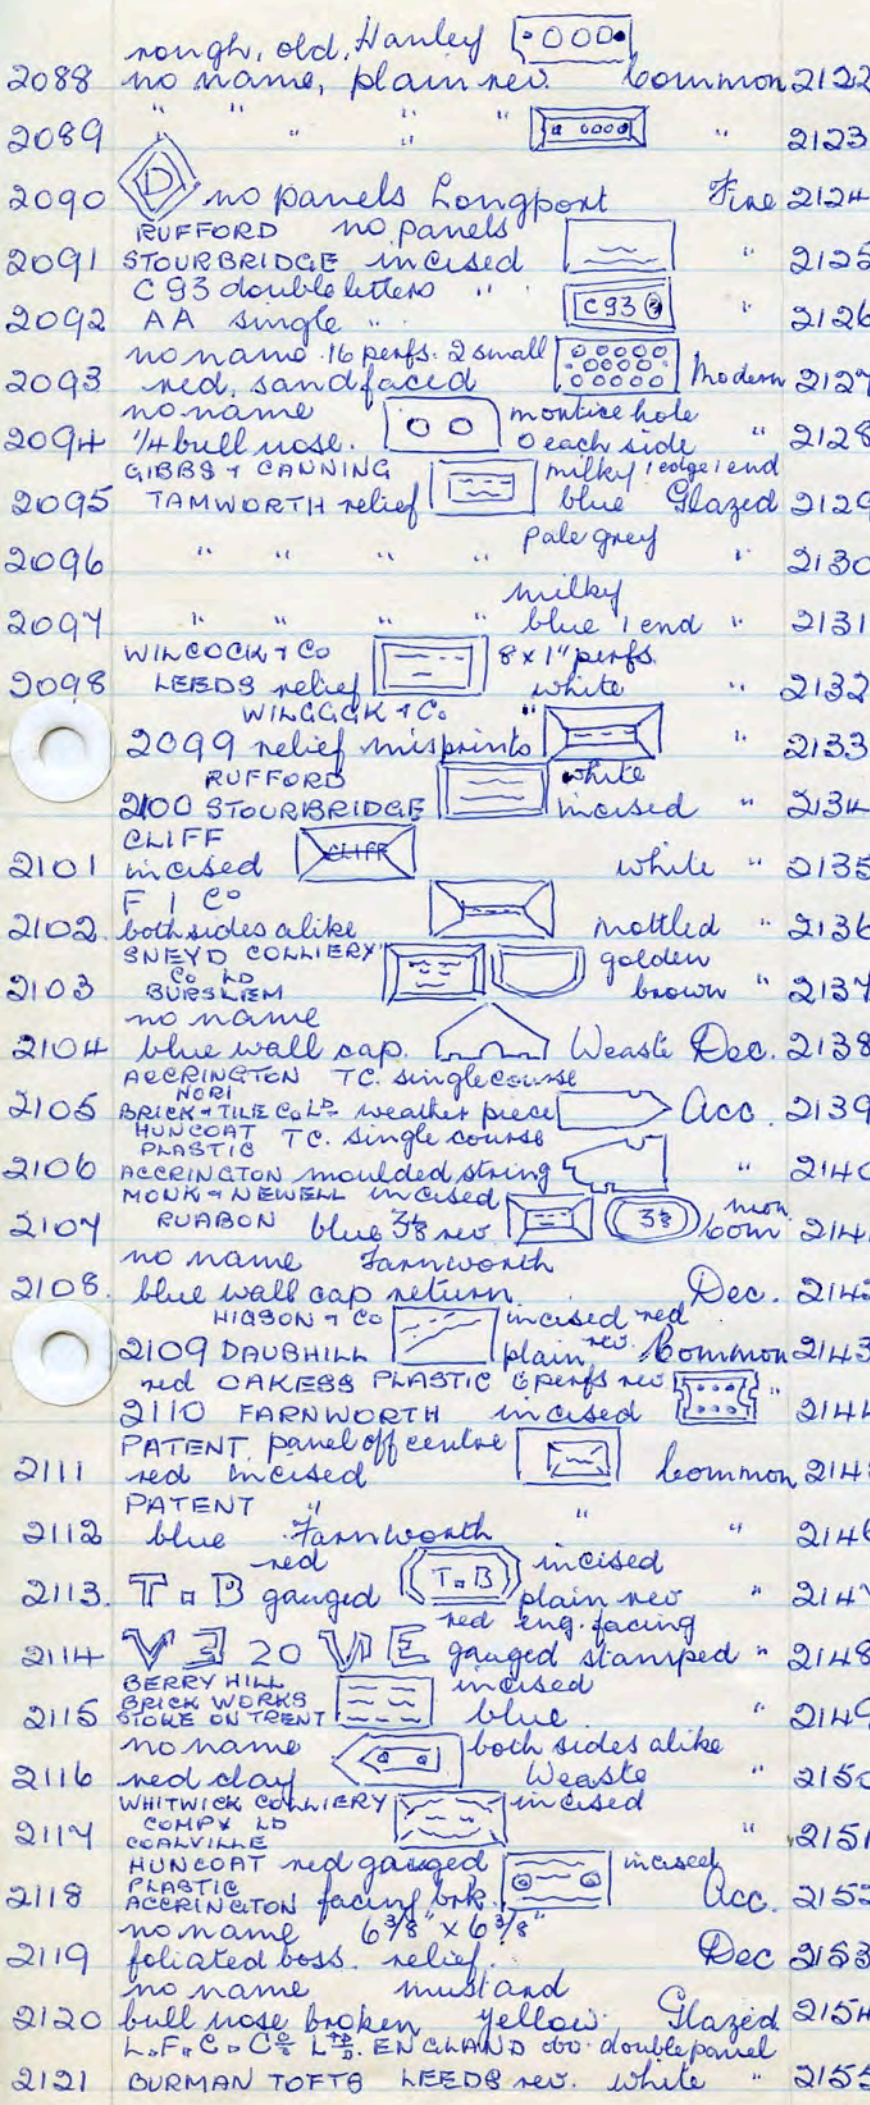 rough, old, Hanley
2088 no name, plain rev. Common 2122
2089 " " " " " " 2123
2090 D no panels Longport Fire 2124
RUFFORD no panels
2091 STOURBRIDGE incised " 2125
C 93 double letters "
2092 AA single " C 93 " 2126
no name 16 perfs. 2 small
2093 red, sandfaced Modern 2127
no name mortice hole
2094 1/4 bull nose. 0 each side " 2128
GIBBS & CANNING milky 1 edge 1 end
2095 TAMWORTH relief blue Glazed 2129
pale grey
2096 " " " " " 2130
milky
2097 " " " " blue 1 end " 2131
WILCOCK & Co 8 x 1" perfs.
2098 LEEDS relief white " 2132
WILCGGK & Co. "
2099 relief misprints " 2133
RUFFORD white
2100 STOURBRIDGE incised " 2134
CLIFF
2101 incised CLIFF white " 2135
F I Co
2102. both sides alike mottled " 2136
SNEYD COLLIERY golden
Co LD
2103 BURSLEM brown " 2137
no name
2104 blue wall cap. Weaste Dec. 2138
ACCRINGTON TC. single course
NORI
2105 BRICK & TILE Co LD weather piece Acc. 2139
HUNCOAT TC. single course
PLASTIC
2106 ACCRINGTON moulded string " 2140
MONK & NEWELL incised
2107 RUABON blue 3 1/8 rev 3 1/8 Com 214
no name Farnworth
2108. blue wall cap return. Dec. 214
HIGSON & Co incised red
2109 DAUBHILL plain rev. Common 2143
red OAKESS PLASTIC 6 perfs rev "
2110 FARNWORTH incised 214
PATENT. panel off centre
2111 red incised Common 214
PATENT " "
2112 blue Farnworth " 2146
red incised
2113. T ▫ B gauged T ▫ B plain rev " 214
red eng. facing
2114 VE 20 VE gauged stamped " 2148
BERRY HILL incised
BRICK WORKS
2115 STOKE ON TRENT blue. " 2149
no name both sides alike
2116 red clay Weaste " 2150
WHITWICK COLLIERY incised
COMPY LD
2117 COALVILLE " 2151
HUNCOAT red gauged incised
PLASTIC
2118 ACCRINGTON facing brk. Acc. 2152
no name 6 3/8" x 6 3/8"
2119 foliated boss. relief. Dec 2153
no name mustard
2120 bull nose broken yellow. Glazed. 2154
L.F.C. Co LTD. ENGLAND obv. double panel
2121 BURMAN TOFTS LEEDS rev. white " 2155